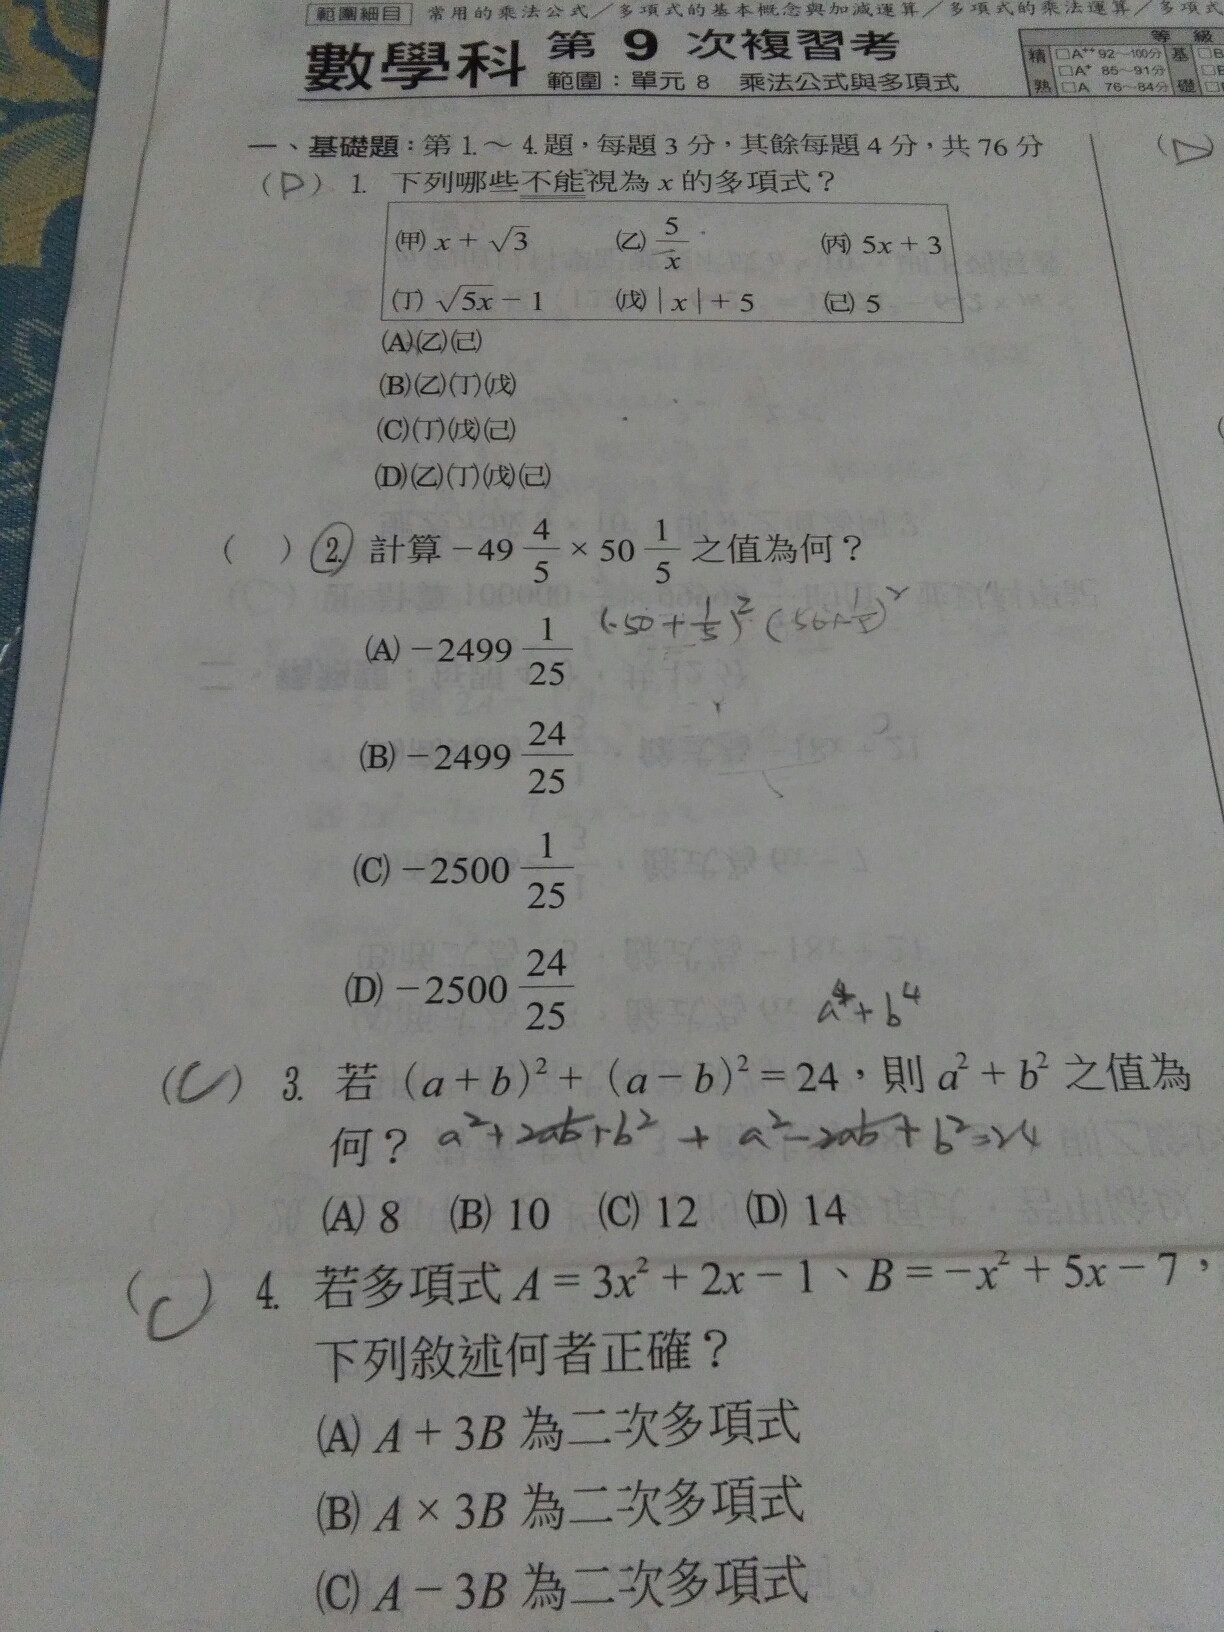 範圍細目 常用的乘法公式／多項式的基本概念與加減運算／多項式的乘法運算／多項式
數學科 第 9 次複習考
範圍：單元 8 乘法公式與多項式
等級
精熟 □A⁺⁺ 92～100分 基礎 □B
□A⁺ 85～91分 □B
□A 76～84分 □
一、基礎題：第 1.～ 4.題，每題 3 分，其餘每題 4 分，共 76 分
(D) 1. 下列哪些不能視為 x 的多項式？
(甲) x + √3 (乙) 5/x (丙) 5x + 3
(丁) √5x − 1 (戊) | x | + 5 (己) 5
(A)(乙)(己)
(B)(乙)(丁)(戊)
(C)(丁)(戊)(己)
(D)(乙)(丁)(戊)(己)
( ) 2. 計算 −49 4/5 × 50 1/5 之值為何？
(-50 + 1/5)²
(A) −2499 1/25
(B) −2499 24/25
(C) −2500 1/25
(D) −2500 24/25
a⁴ + b⁴
(C) 3. 若 (a + b)² + (a − b)² = 24，則 a² + b² 之值為
何？ a² + 2ab + b² + a² − 2ab + b² = 24
(A) 8 (B) 10 (C) 12 (D) 14
(C) 4. 若多項式 A = 3x² + 2x − 1、B = −x² + 5x − 7，
下列敘述何者正確？
(A) A + 3B 為二次多項式
(B) A × 3B 為二次多項式
(C) A − 3B 為二次多項式
(D)